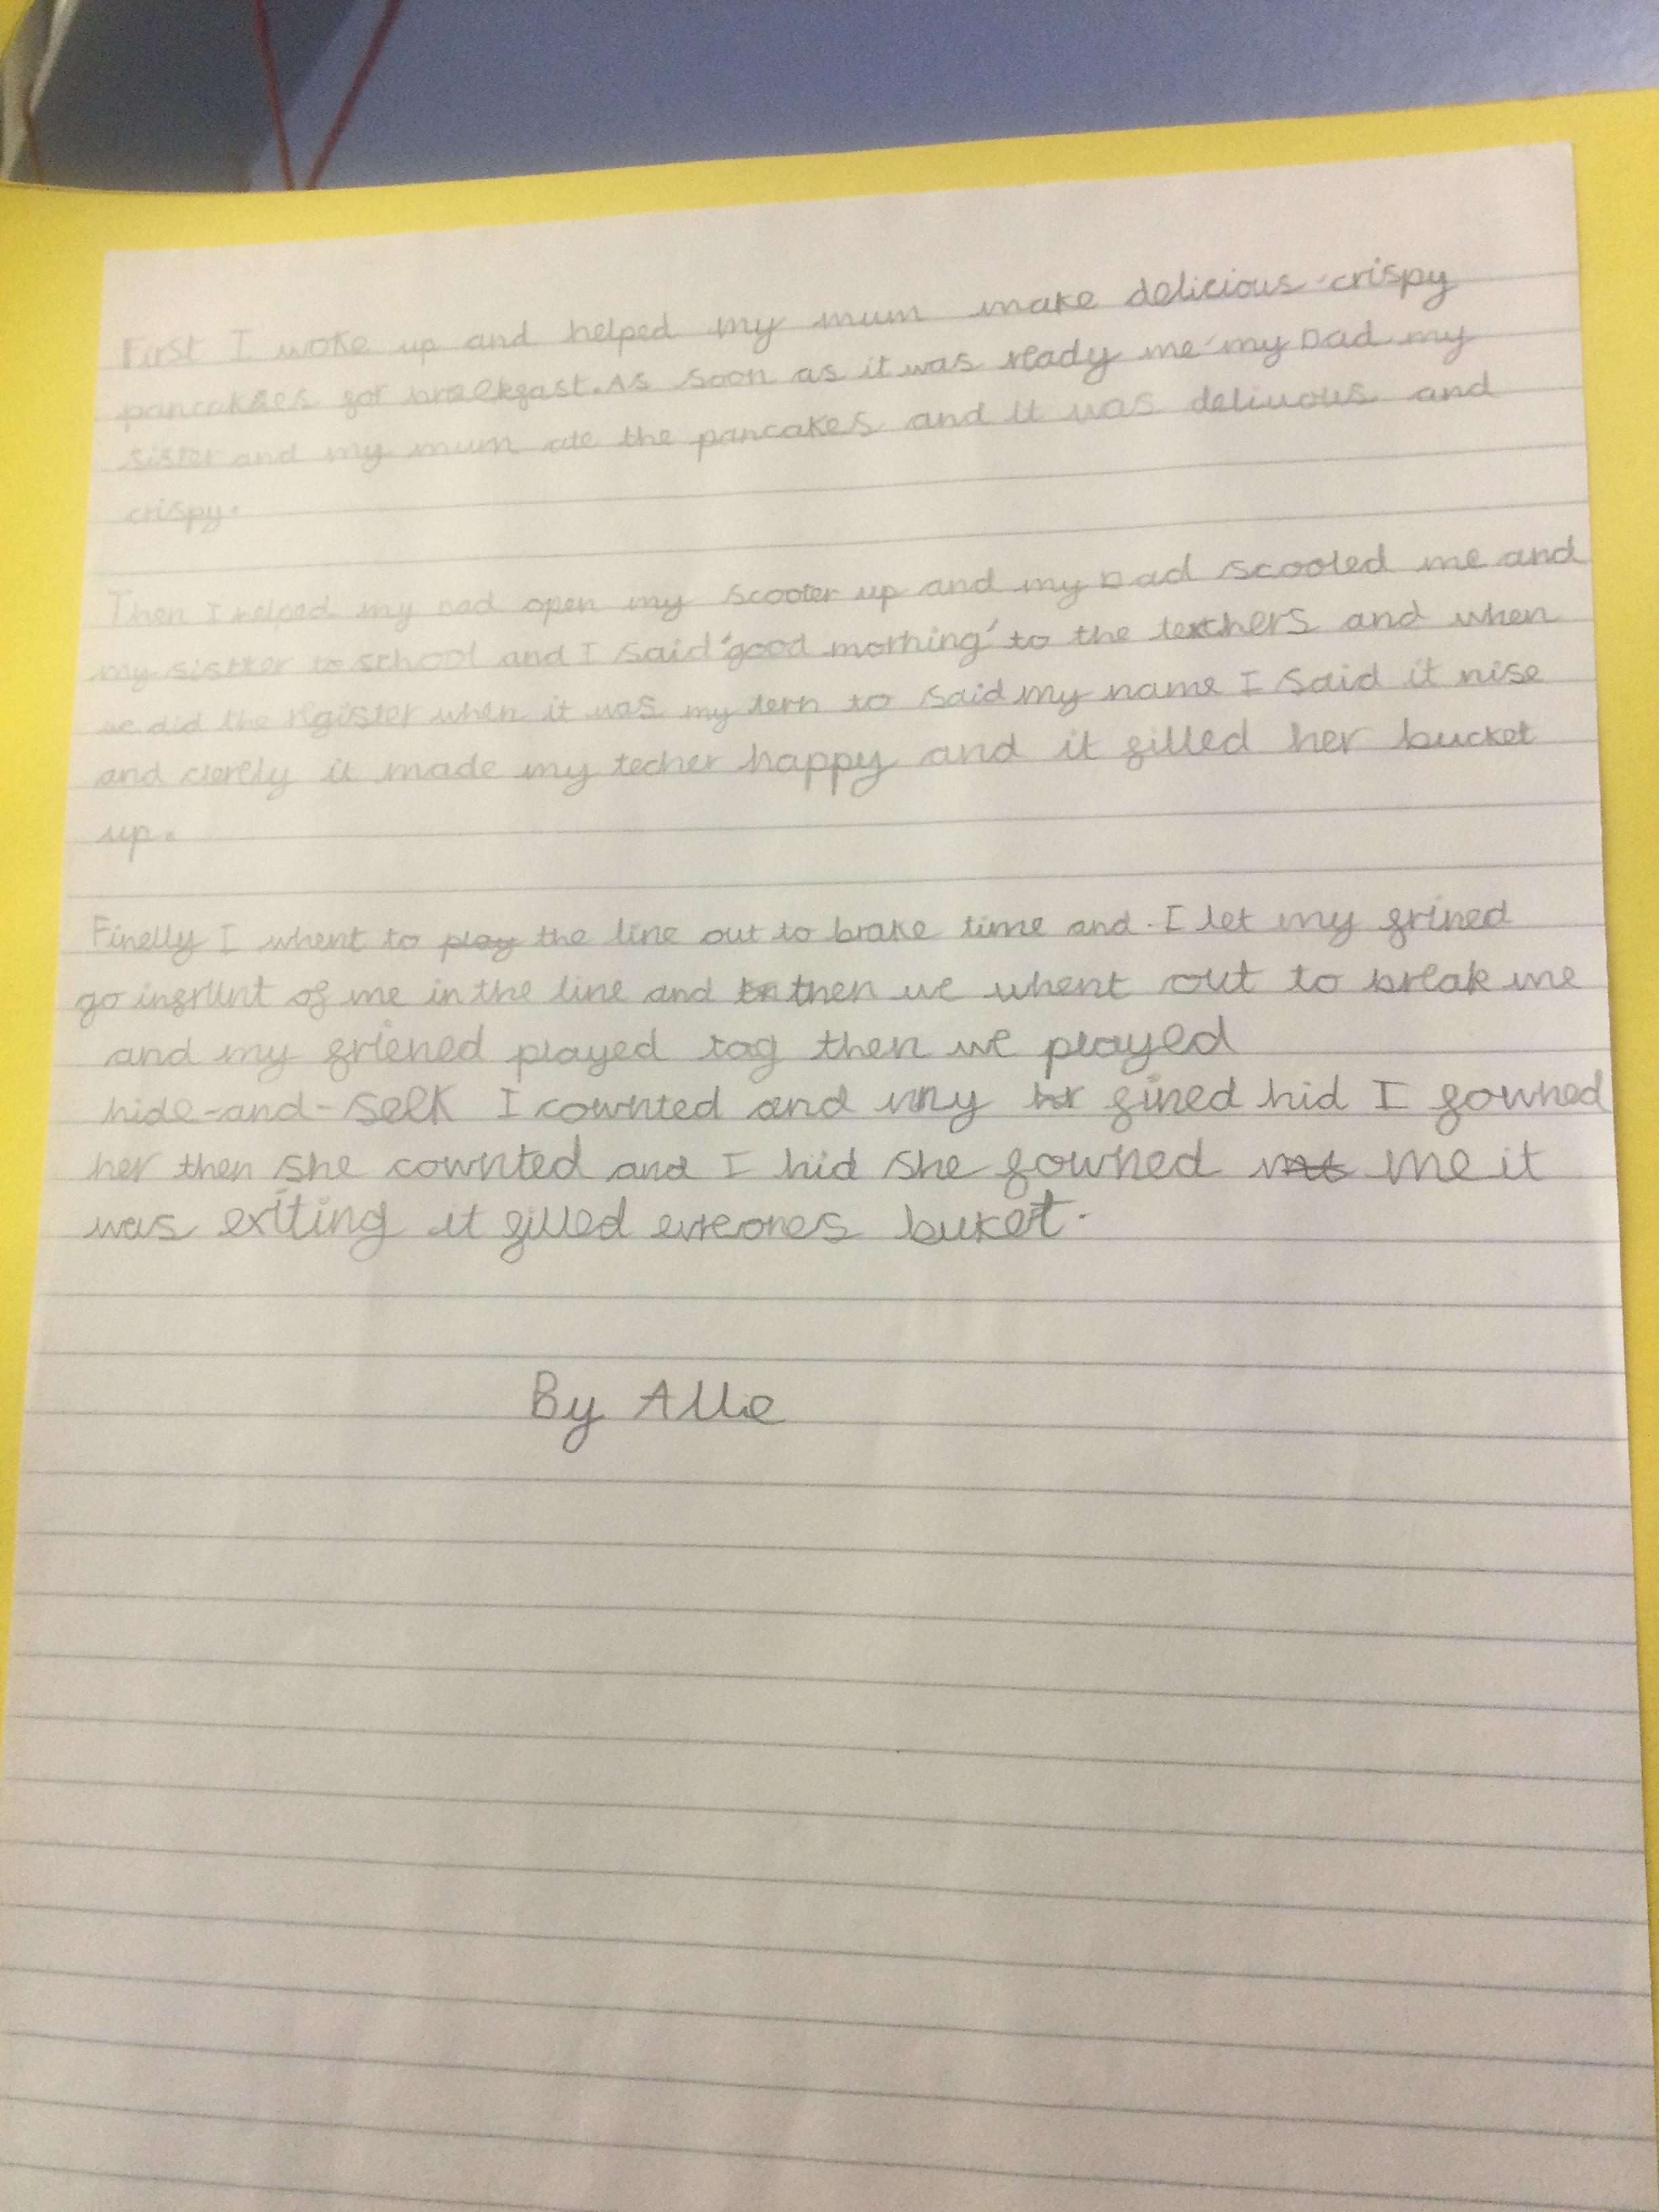 First I woke up and helped my mum make delicious crispy
pancakes for breekfast. As soon as it was ready me my Dad my
sister and my mum ate the pancakes and it was delicuous and
crispy.
Then I helped my Dad open my scooter up and my Dad scooted me and
my sister to school and I said 'good morning' to the teachers and when
we did the register when it was my tern to said my name I said it nise
and clerely it made my techer happy and it filled her bucket
up.
Finelly I whent to play the line out to brake time and I let my frined
go infrunt of me in the line and then we whent out to break me
and my friened played tag then we played
hide-and-seek I cownted and my fined hid I fowned
her then she cownted and I hid she fowned me it
was exiting it filled evreones buket.
By Allie